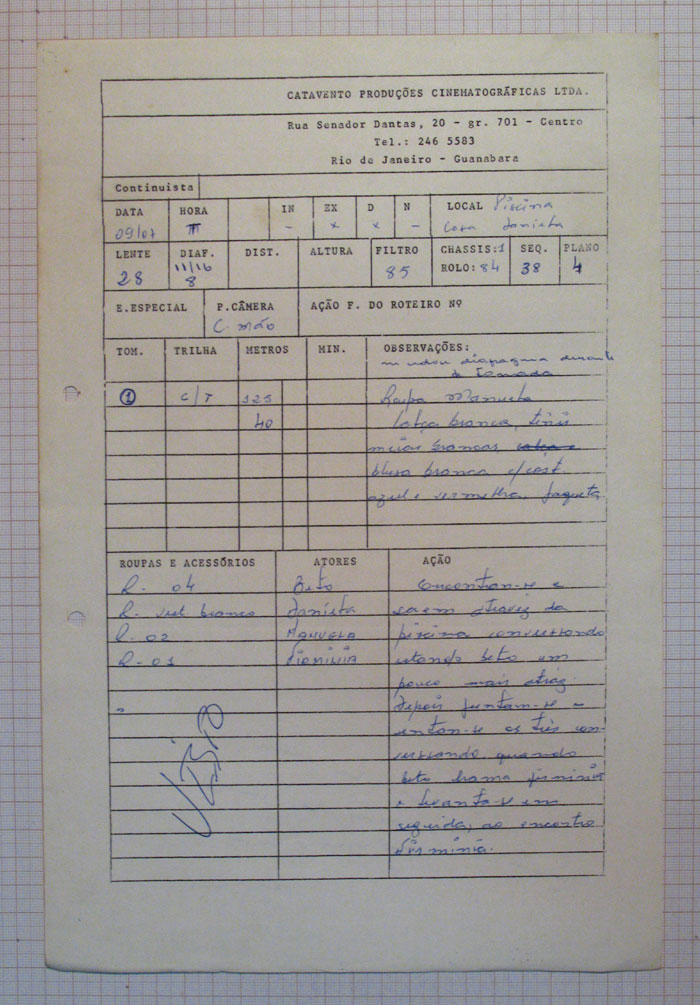 CATAVENTO PRODUÇÕES CINEMATOGRÁFICAS LTDA.
Rua Senador Dantas, 20 - gr. 701 - Centro
Tel.: 246 5583
Rio de Janeiro - Guanabara
Continuista
DATA HORA IN EX D N LOCAL Piscina
09/07 - x x - Casa
LENTE DIAF. DIST. ALTURA FILTRO CHASSIS:1 SEQ. PLANO
28 11/16 8 85 ROLO: 84 38 4
E.ESPECIAL P.CÂMERA AÇÃO F. DO ROTEIRO Nº
C. mão
TOM. TRILHA METROS MIN. OBSERVAÇÕES:
mudou diafragma durante
a tomada
1 C/T 125 Roupa Manuela
40 calça branca, tênis
meias brancas
blusa branca c/cost.
azul e vermelha, jaqueta
ROUPAS E ACESSÓRIOS ATORES AÇÃO
R. 04 Beto Encontram-se e
R. vest. branco saem atravez da
R. 02 MANUELA piscina conversando
R. 01 estando beto um
pouco mais atráz.
depois juntam-se e
os três con-
versando quando
beto
e levanta-se em
seguida, ao encontro
VISTO